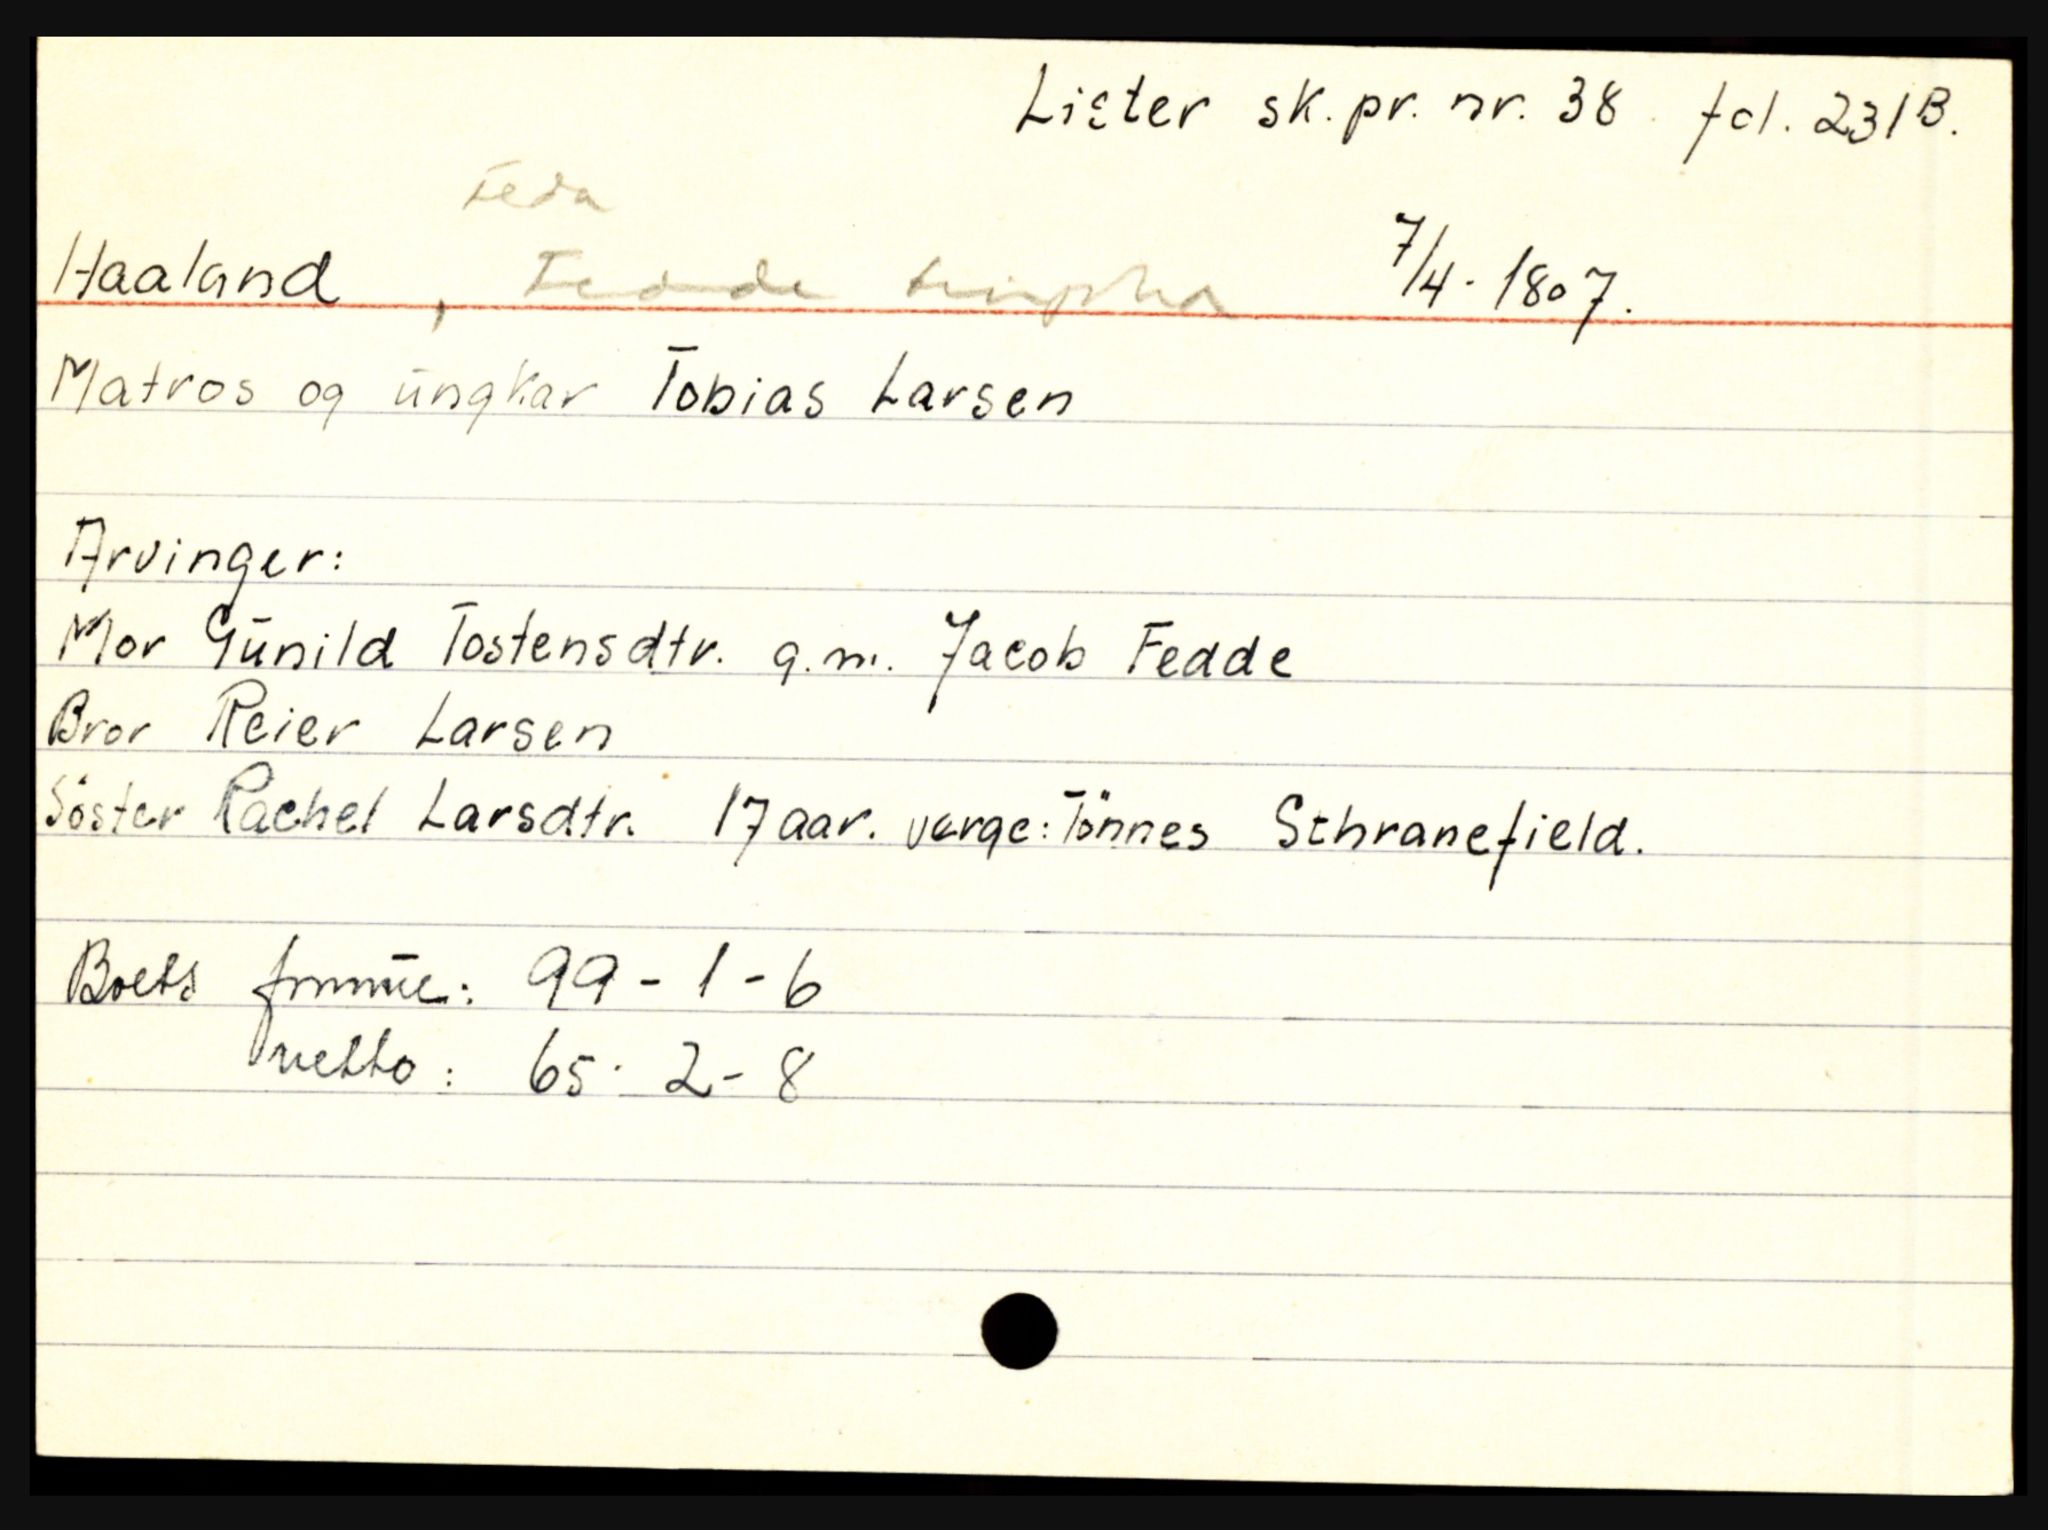 Lister sk.pr. nr. 38 fol. 231B.
Feda
Haaland, Fedde 7/4-1807.
Matros og ungkar Tobias Larsen
Arvinger:
Mor Gunild Tostensdtr. g.m. Jacob Fedde
Bror Reier Larsen
Söster Rachel Larsdtr. 17 aar. verge: Tönnes Sthranefield.
Boets fmue: 99-1-6
netto: 65-2-8